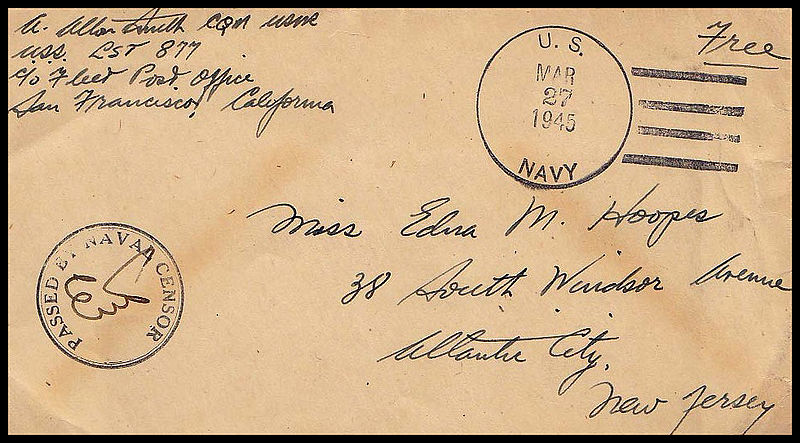 A. Allan Smith CQM USNR
U.S.S. LST 877
c/o Fleet Post Office
San Francisco, California
Free
U. S.
MAR
27
1945
NAVY
PASSED BY NAVAL CENSOR
Miss Edna M. Hoopes
38 South Windsor Avenue
Atlantic City,
New Jersey